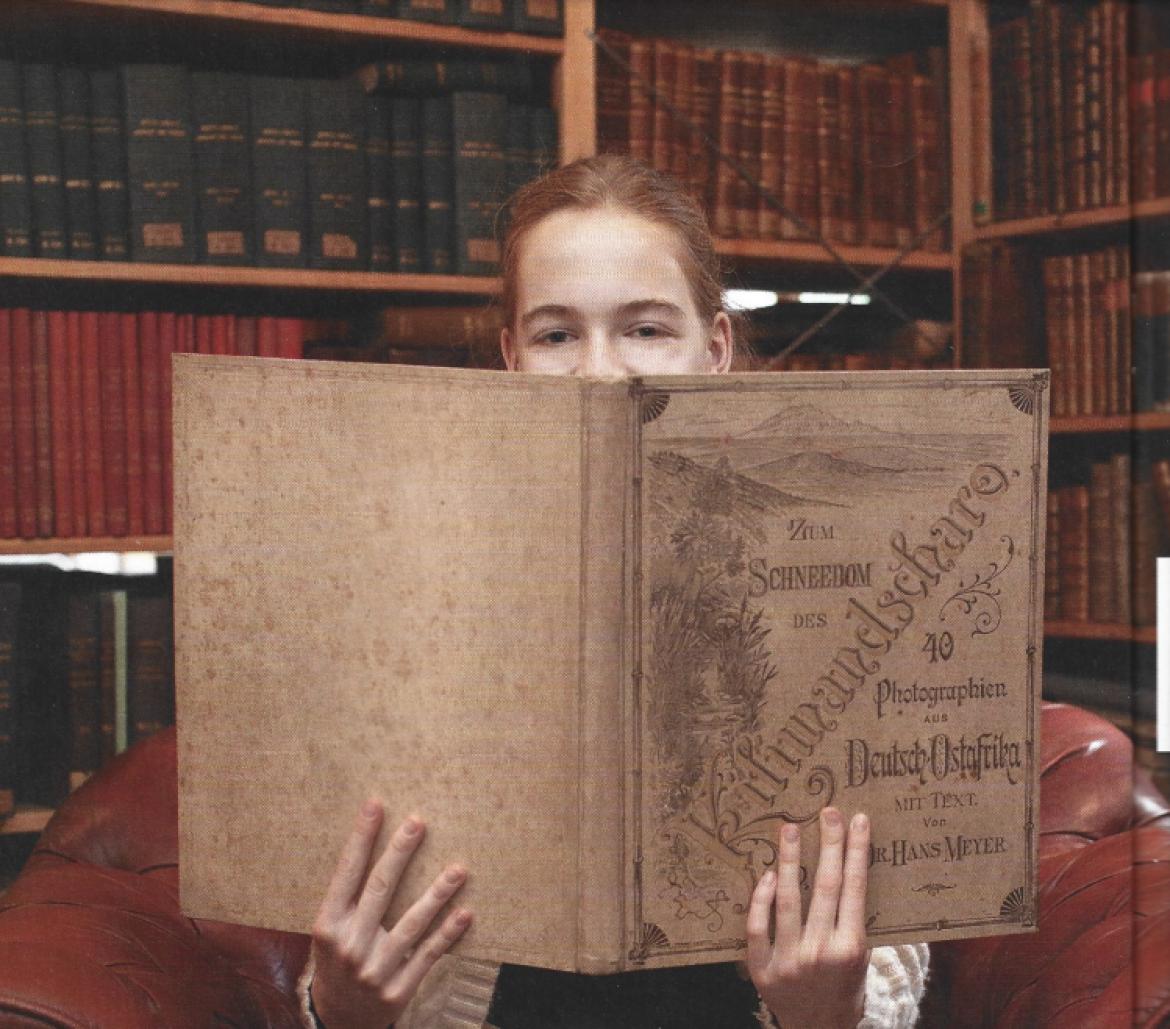 Zum
Schneedom
des
Kilimandscharo.
40
Photographien
aus
Deutsch-Ostafrika
mit Text.
Von
Dr. Hans Meyer